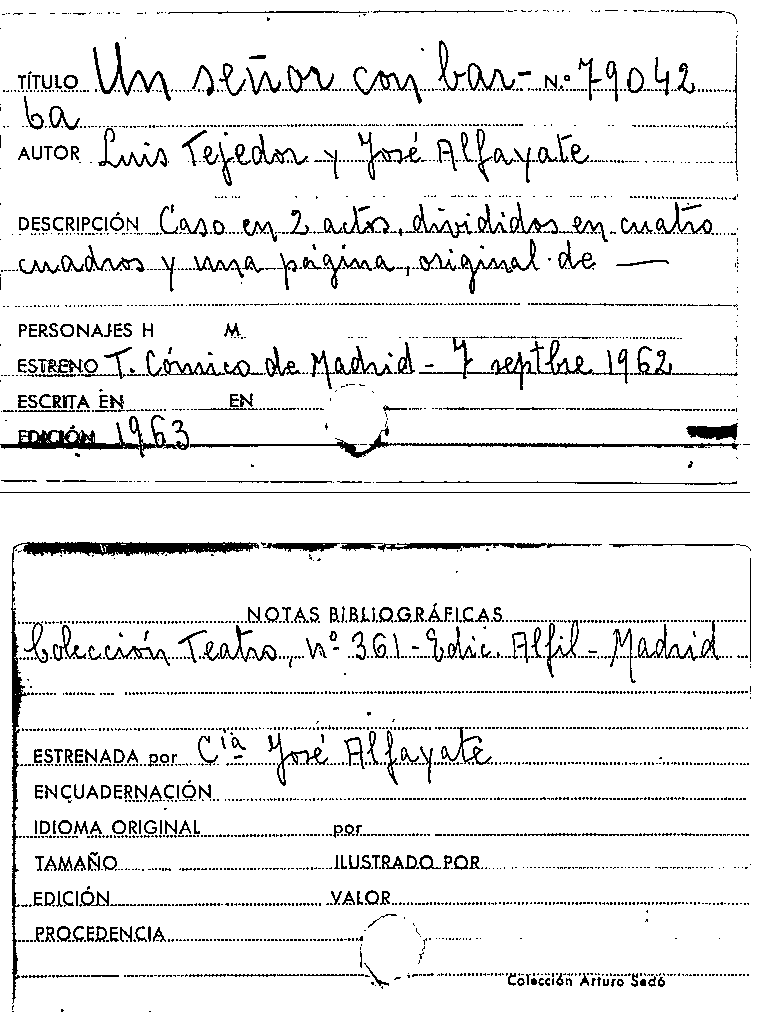 TÍTULO Un señor con bar- N.º 79042
ba
AUTOR Luis Tejedor y José Alfayate
DESCRIPCIÓN Caso en 2 actos, divididos en cuatro
cuadros y una página, original de —
PERSONAJES H M.
ESTRENO T. Cómico de Madrid - 7 septbre 1962
ESCRITA EN EN
EDICIÓN 1963
NOTAS BIBLIOGRÁFICAS
Colección Teatro, nº 361 - Edic. Alfil - Madrid
ESTRENADA por Cía José Alfayate
ENCUADERNACIÓN
IDIOMA ORIGINAL por
TAMAÑO ILUSTRADO POR
EDICIÓN VALOR
PROCEDENCIA
Colección Arturo Sedó